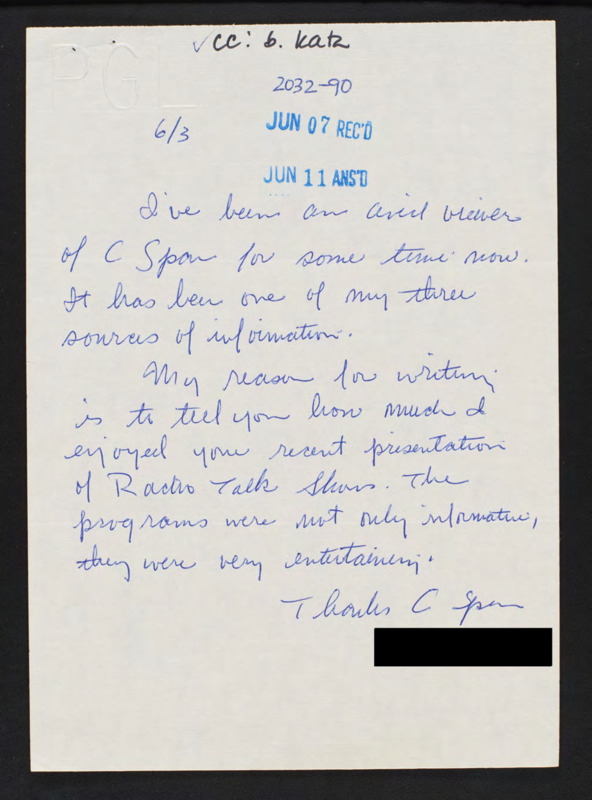 ✓cc: b. Katz
PGL
2032-90
6/3
JUN 07 REC'D
JUN 11 ANS'D
I've been an avid viewer
of C Span for some time now.
It has been one of my three
sources of information.
My reason for writing
is to tell you how much I
enjoyed your recent presentation
of Radio Talk Shows. The
programs were not only informative,
they were very entertaining.
Thanks C Span